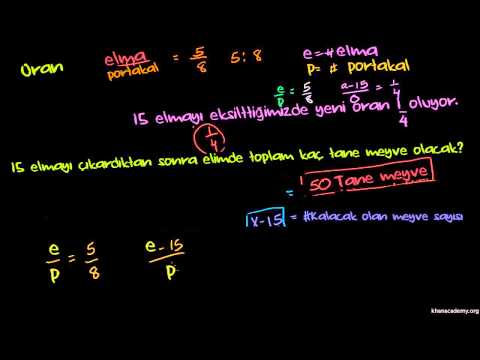 oran elma/portakal = 5/8 5:8 e=#elma
p= # portakal
e/p = 5/8 a-15/0 = 1/4
15 elmayı eksilttiğimizde yeni oran 1/4 oluyor.
1/4
15 elmayı çıkardıktan sonra elimde toplam kaç tane meyve olacak?
= 50 Tane meyve
x-15 = #Kalacak olan meyve sayısı
e/p = 5/8 e-15/p
khanacademy.org